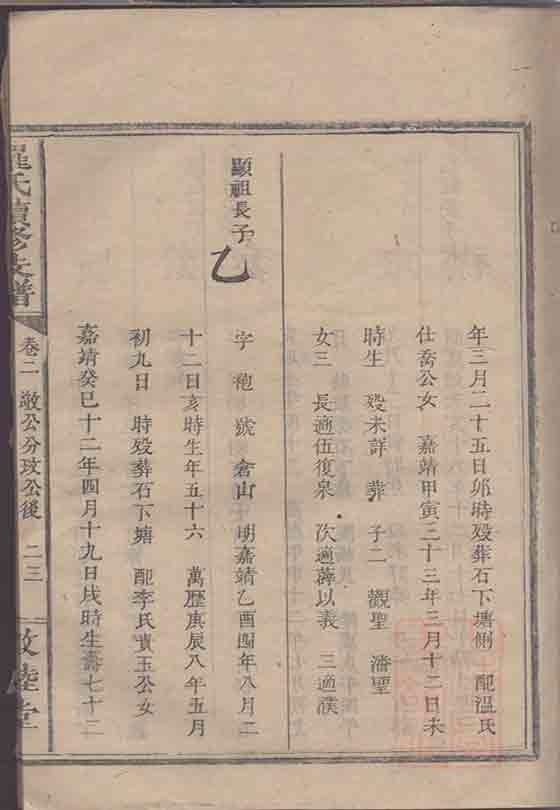 年三月二十五日卯時歿葬石下塘側 配溫氏
仕喬公女 嘉靖甲寅三十三年三月十二日未
時生 歿未詳 葬 子二 觀聖 潘聖
女三 長適伍復泉 次適蔣以義 三適濮
顯祖長子
乙
字 號倉山 明嘉靖乙酉四年八月二
十二日亥時生年五十六 萬歷庚辰八年五月
初九日 時歿葬石下塘 配李氏貴玉公女
嘉靖癸巳十二年四月十九日戌時生壽七十二
羅氏續修支譜
卷二 敬公分玟公後 二三
敦睦堂